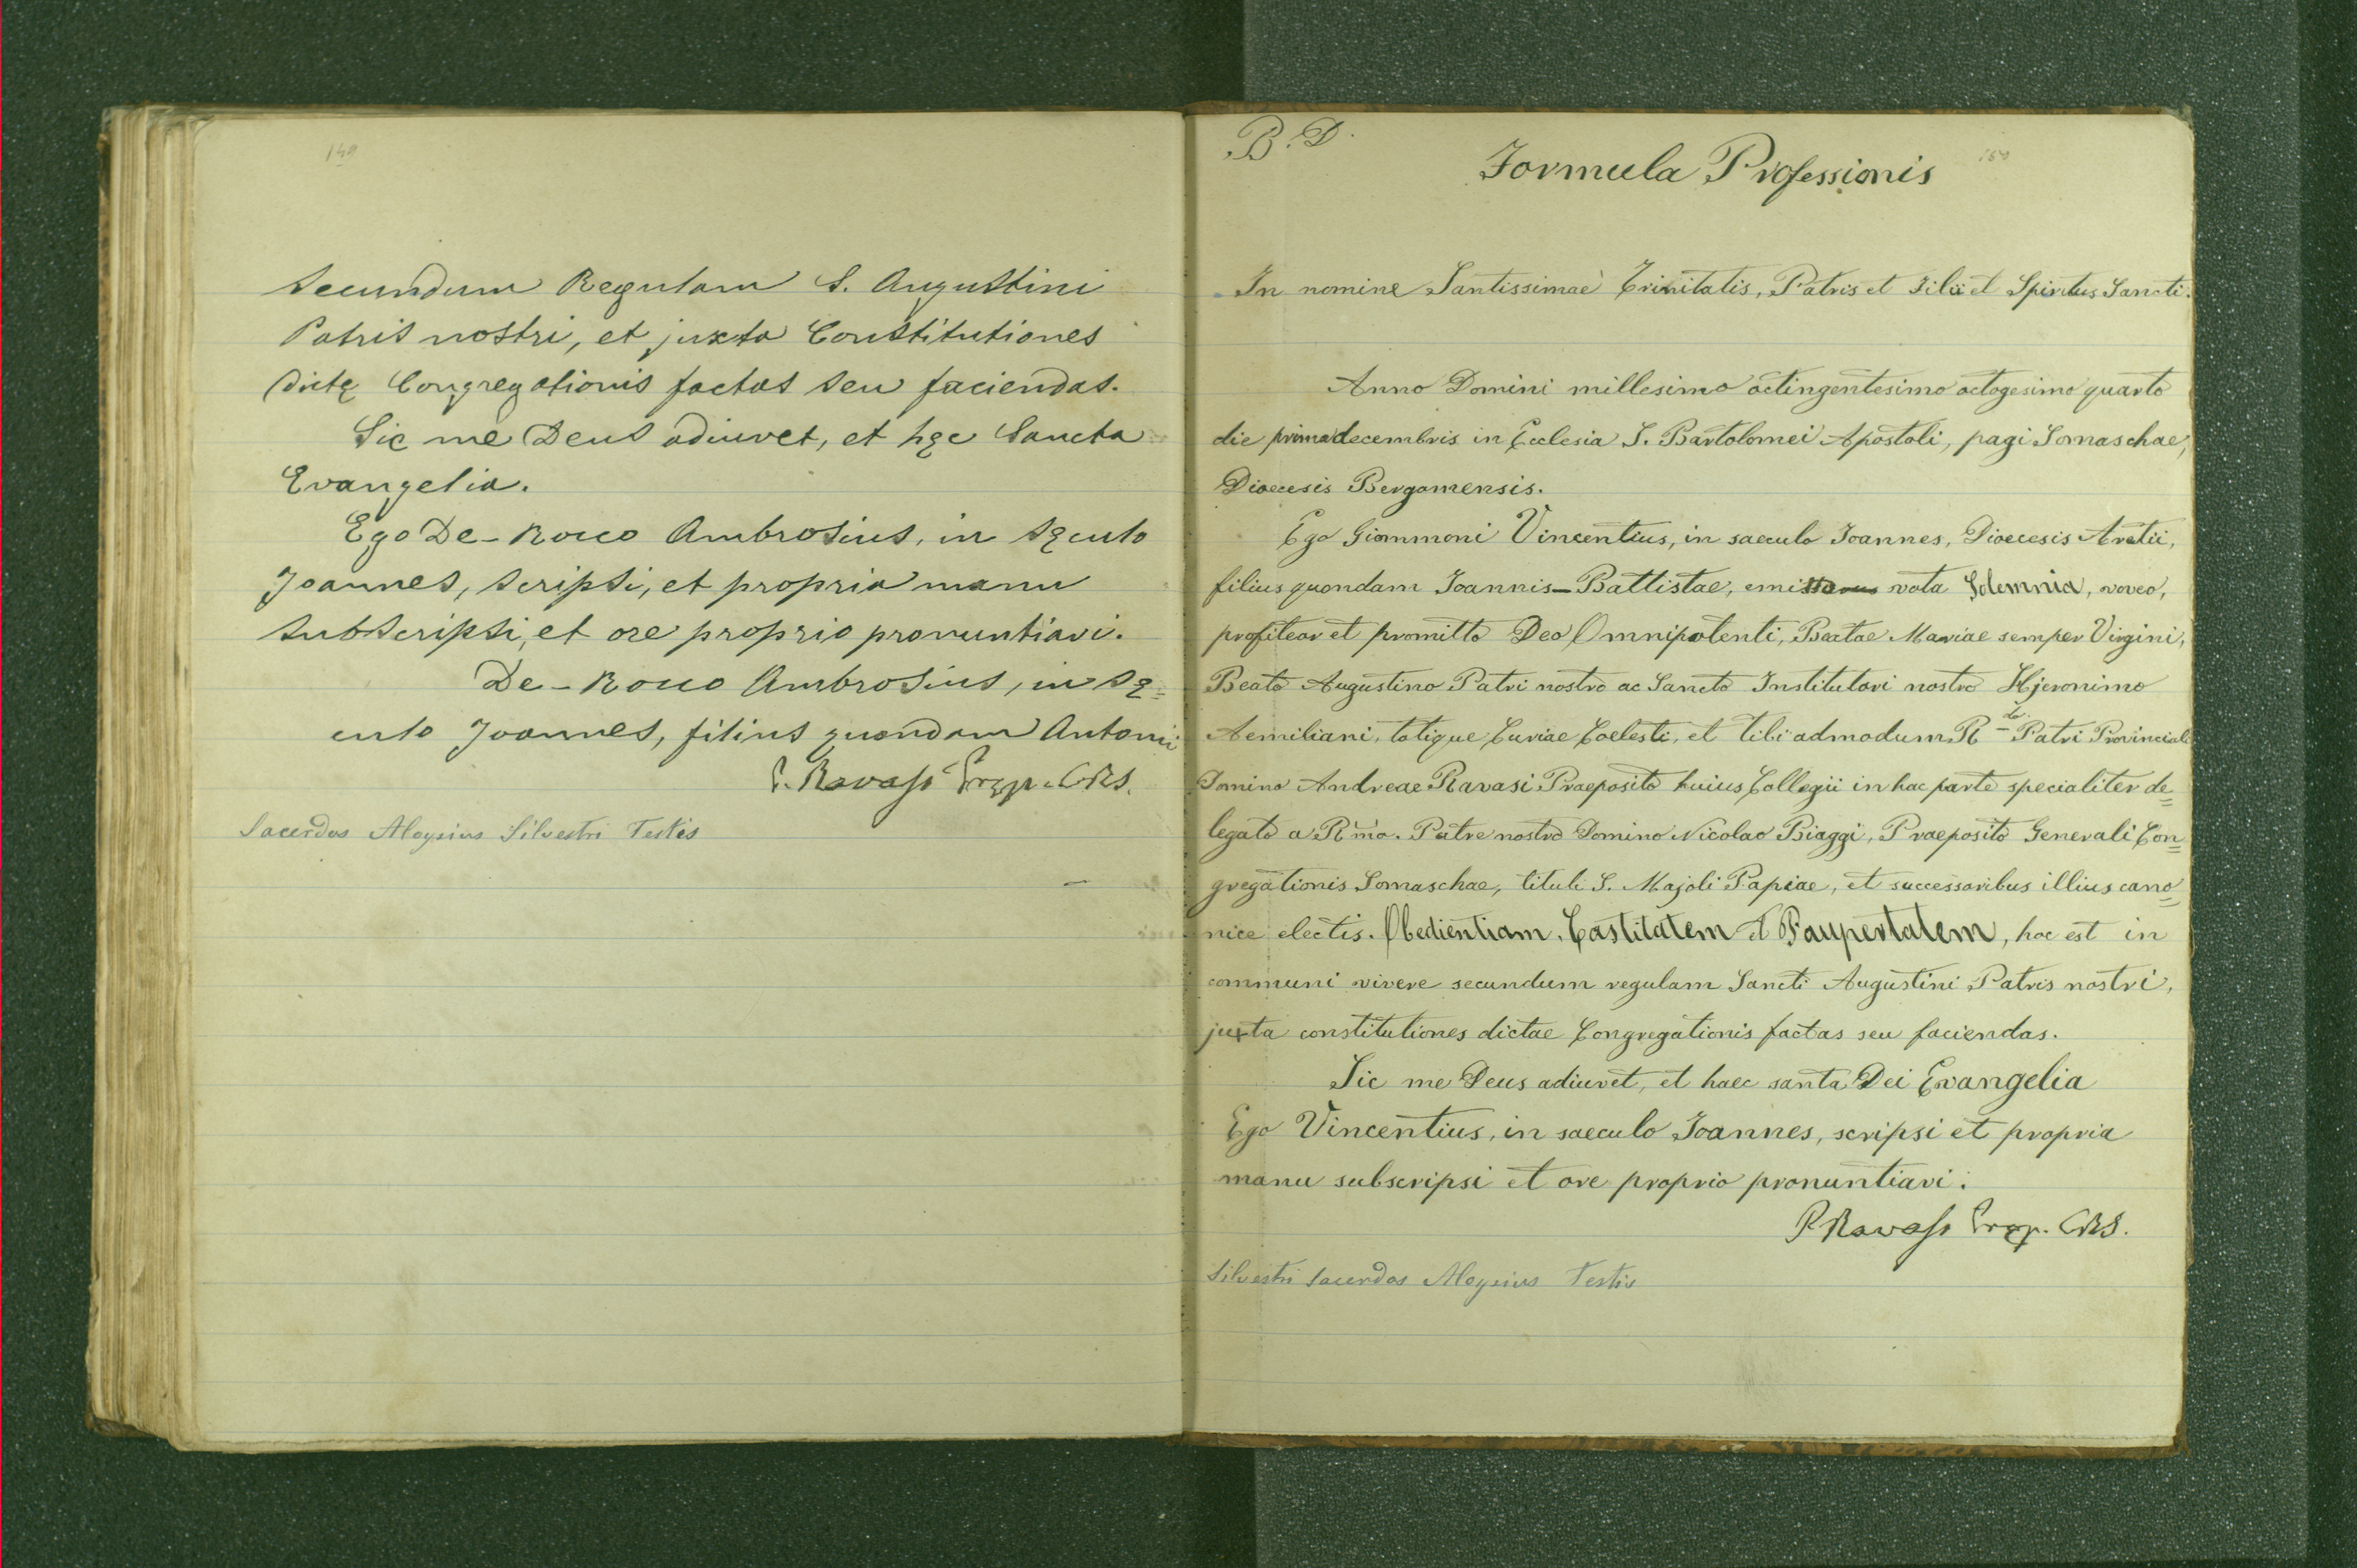 149
secundum Regulam S. Augustini
Patris nostri, et juxta Constitutiones
dictę Congregationis factas seu faciendas.
Sic me Deus adiuvet, et hęc Sancta
Evangelia.
Ego De-Rocco Ambrosius, in sęculo
Joannes, scripsi, et propria manu
subscripsi, et ore proprio pronuntiavi.
De-Rocco Ambrosius, in sę=
culo Joannes, filius quondam Antonii
P. Ravasi Pręp. CRS.
Sacerdos Aloysius Silvestri Testis
B. D.
150
Formula Professionis
In nomine Santissimae Trinitatis, Patris et Filii et Spiritus Sancti.
Anno Domini millesimo octingentesimo octogesimo quarto
die prima decembris in Ecclesia S. Bartolomei Apostoli, pagi Somaschae,
Dioecesis Bergomensis.
Ego Giommoni Vincentius, in saeculo Joannes, Dioecesis Aretii,
filius quondam Joannis-Battistae, emissurus vota Solemnia, voveo,
profiteor et promitto Deo Omnipotenti, Beatae Mariae semper Virgini,
Beato Augustino Patri nostro ac Sancto Institutori nostro Hjeronimo
Aemiliani, totique Curiae Coelesti, et tibi admodum R.do Patri Provinciali
Domino Andreae Ravasi Praeposito huius Collegii in hac parte specialiter de=
legato a Rmo. Patre nostro Domino Nicolao Biaggi, Praeposito Generali Con=
gregationis Somaschae, tituli S. Majoli Papiae, et successoribus illius cano=
nice electis. Obedientiam, Castitatem et Paupertatem, hoc est in
communi vivere secundum regulam Sancti Augustini Patris nostri,
juxta constitutiones dictae Congregationis factas seu faciendas.
Sic me Deus adiuvet, et haec santa Dei Evangelia
Ego Vincentius, in saeculo Joannes, scripsi et propria
manu subscripsi et ore proprio pronuntiavi.
P. Ravasi Pręp. CRS.
Silvestri Sacerdos Aloysius Testis